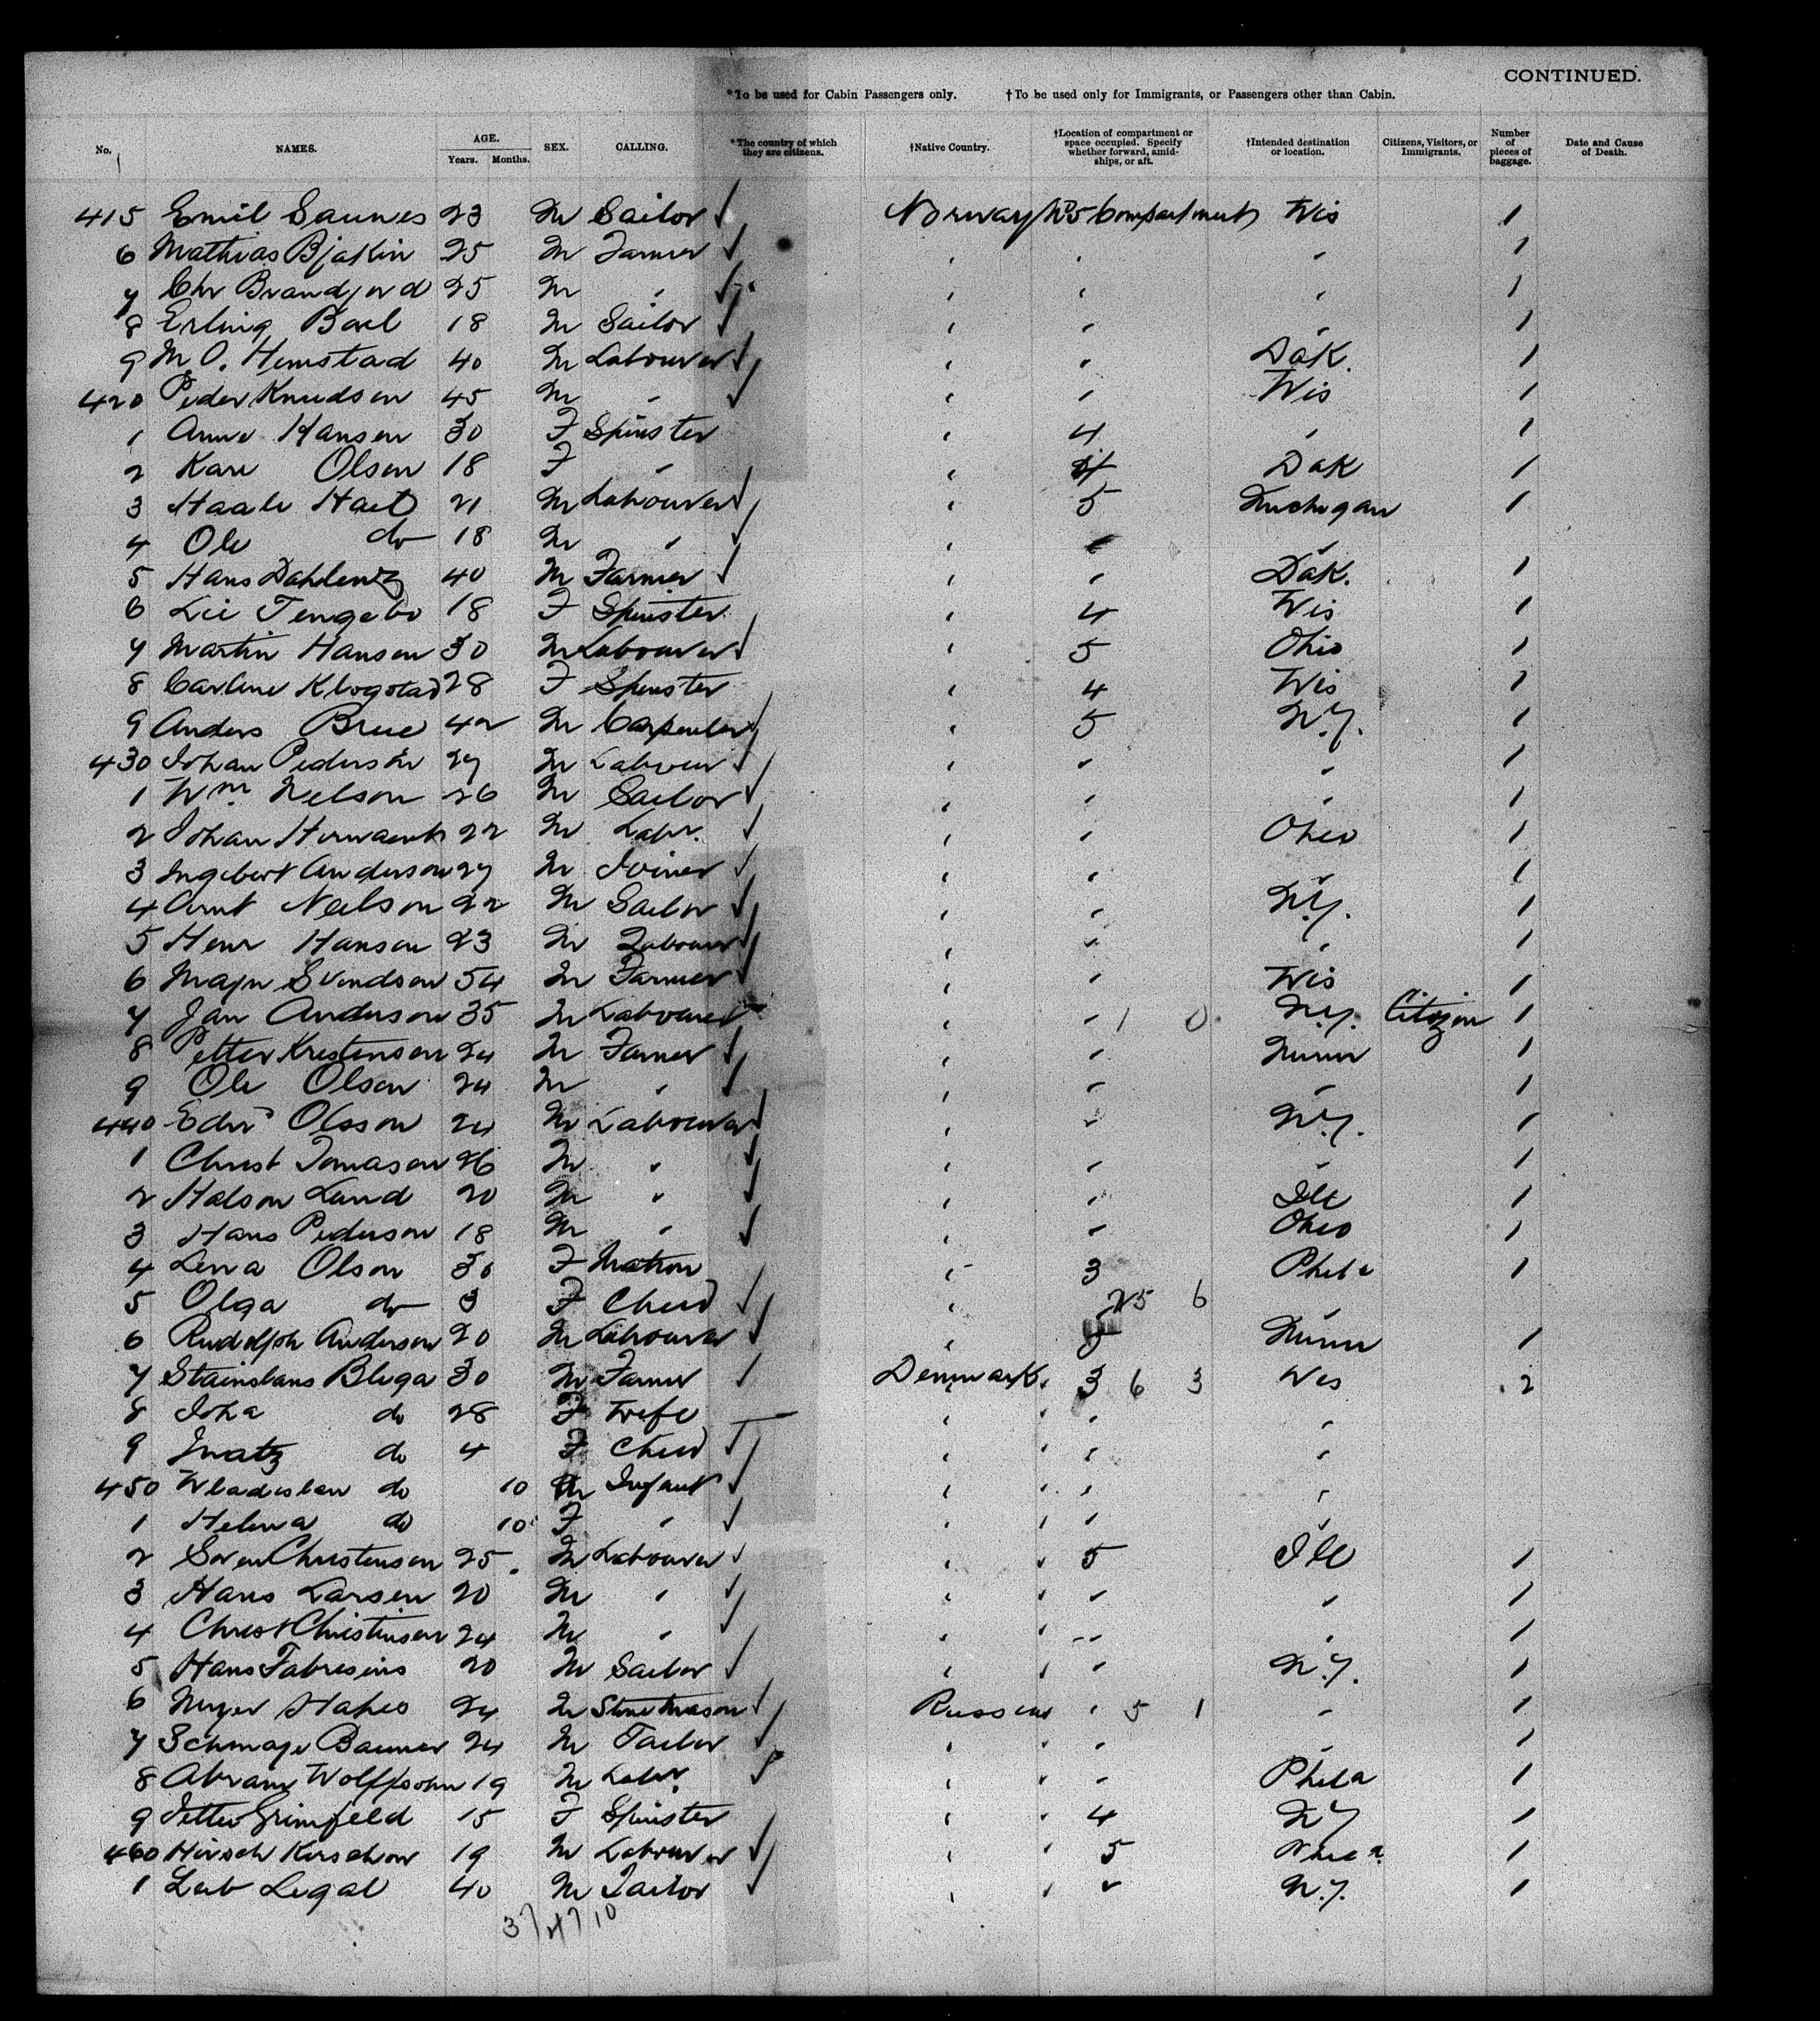 CONTINUED.
*To be used for Cabin Passengers only. †To be used only for Immigrants, or Passengers other than Cabin.
No. NAMES. AGE. Years. Months. SEX. CALLING. *The country of which they are citizens. †Native Country. †Location of compartment or space occupied. Specify whether forward, amidships, or aft. †Intended destination or location. Citizens, Visitors, or Immigrants. Number of pieces of baggage. Date and Cause of Death.
415 Emil Saunes 23 M Sailor ✓ Norway No 5 Compartment Wis 1
6 Mathias Bjakin 25 M Farmer ✓ " " " 1
7 Chr Brandjord 25 M " ✓ " " " 1
8 Erling Boel 18 M Sailor ✓ " " " 1
9 M O. Hemstad 40 M Labourer ✓ " " Dak. 1
420 Peder Knudson 45 M " ✓ " " Wis 1
1 Anne Hansen 30 F Spinster " 4 " 1
2 Kari Olson 18 F " " 4 Dak 1
3 Haale Hael 21 M Labourer ✓ " 5 Michigan 1
4 Ole do 18 M " ✓ " " "
5 Hans 40 M Farmer ✓ " " Dak. 1
6 Lie Tengebo 18 F Spinster " 4 Wis 1
7 Martin Hansen 30 M Labourer ✓ " 5 Ohio 1
8 Carline Klogstad 28 F Spinster " 4 Wis 1
9 Anders Brue 42 M Carpenter ✓ " 5 N.Y. 1
430 Johan Pederson 27 M Labour ✓ " " " 1
1 Wm Nelson 26 M Sailor ✓ " " " 1
2 Johan 22 M Labr. ✓ " " Ohio 1
3 Ingebert Anderson 27 M Joiner ✓ " " " 1
4 Arnt Neilson 22 M Sailor ✓ " " N.Y. 1
5 Henr Hanson 23 M Labourer ✓ " " " 1
6 Majn Svendson 54 M Farmer ✓ " " Wis 1
7 Jan Anderson 35 M Labourer " " 1 0 N.Y. Citizen 1
8 Petter Kristenson 24 M Farmer ✓ " " Minn 1
9 Ole Olson 24 M " ✓ " " " 1
440 Edw Olsson 24 M Labourer ✓ " " N.Y. 1
1 Christ Tomason 26 M " ✓ " " " 1
2 Halson Lund 20 M " ✓ " " Ill 1
3 Hans Pederson 18 M " ✓ " " Ohio 1
4 Lena Olson 30 F Matron " 3 Phila 1
5 Olga do 3 F Child ✓ " 25 6 "
6 Rudolph Anderson 20 M Labourer ✓ " 5 Minn 1
7 Stainslans Bluga 30 M Farmer ✓ Denmark 3 6 3 Wis 2
8 Joha do 28 F Wife " " "
9 Inatz do 4 F Child ✓ " " "
450 Wladislaw do 10 M Infant ✓ " " "
1 Helena do 10 F " ✓ " " "
2 Soren Christenson 25 M Labourer ✓ " 5 Ill 1
3 Hans Larsen 20 M " ✓ " " " 1
4 Christ Christinsen 24 M " ✓ " " " 1
5 Hans Fabresins 20 M Sailor ✓ " " N.Y. 1
6 Meyer Hahes 24 M Stone Mason ✓ Russian " 5 1 " 1
7 Schmaje Baumer 24 M Tailor ✓ " " " 1
8 Abram Wolffsohn 19 M Labr. ✓ " " Phila 1
9 Jette Grimfeld 15 F Spinster " 4 NY 1
460 Hirsch Kirschow 19 M Labourer ✓ " 5 Phila. 1
1 Leib Legal 40 M Tailor ✓ " " N.Y. 1
37 47 10